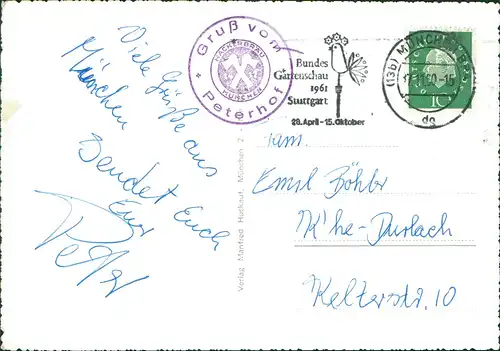 Viele Grüße aus
München
Sendet Euch
Euer
Peter
Gruß vom
HACKERBRÄU
MÜNCHEN
Peterhof
Bundes
Gartenschau
1961
Stuttgart
28. April - 15. Oktober
(13b) MÜNCHEN
-15
dg
10
Verlag Manfred Huckauf, München 2
Fam.
Emil Böhler
K'he-Durlach
Kelterstr. 10